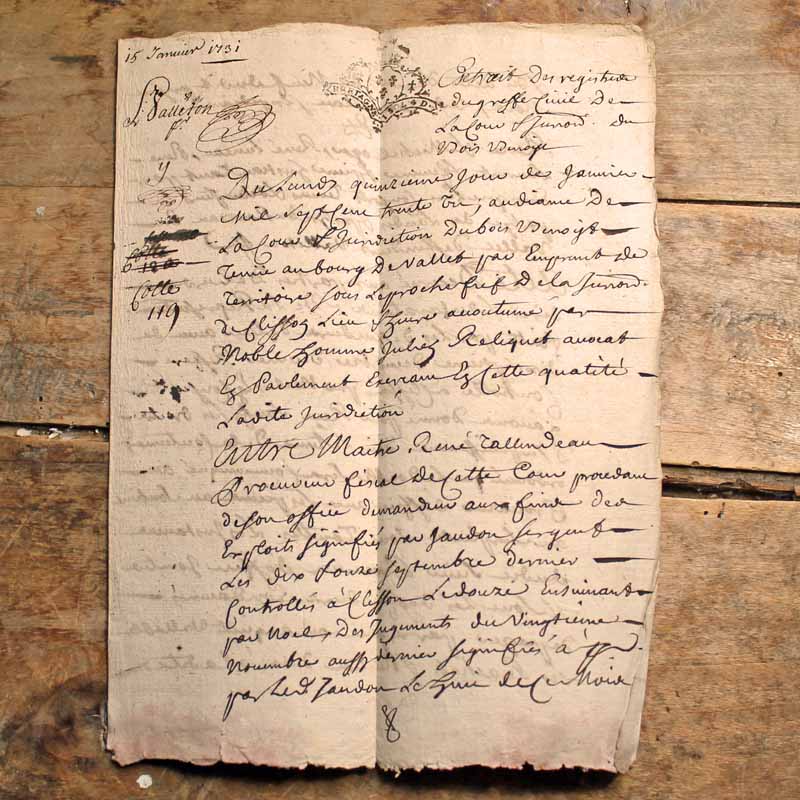 15 Janvier 1731
Extrait des registres
du greffe Civil De
La Cour & Jurisd. du
Bois Benoist
Valleton
BRETAGNE
Du Lundy quinzieme Jour de Janvier
Mil Sept Cent trente un, audiance De
La Cour & Juridiction Dubois Benoist
Tenüe au bourg De Vallet par Emprunt de
Territoire sous Le proche fief De la Jurisd.
de Clisson Lieu & heure acoutumé par
Noble homme Julien Reliquet avocat
En Parlement Exercant En Cette qualité
Ladite Juridiction
Cotte
Cotte
119
Entre Maitre René Tallindeau
Procureur fiscal De Cette Cour procedant
de son office demandeur aux fins des
Exploits signifiés par Jaudon Sergent
Les dix & onze septembre dernier
Controllés à Clisson Le douze Ensuivant
par Noel, Des Jugements du Vingtieme
Novembre aussy dernier signifiés à
par Led. Jaudon Le huit de Ce Mois